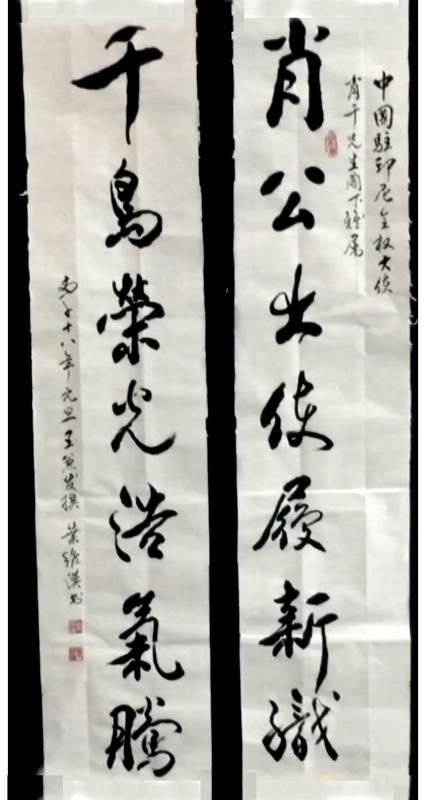 中國駐印尼全权大使
肖千先生閣下雅屬
肖公出使履新職
千島榮光浩氣騰
千十八年元旦王 发撰 葉維漢书